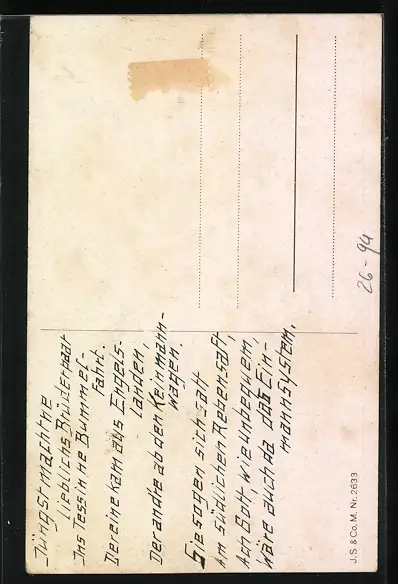 Jüngst machte
Lieblichs Brüderpaar
Ins Tessin ne Bummel-
fahrt.
Der eine kam aus Engels-
landen,
Der andre ab den Keinmann-
wagen.
Sie sogen sich satt
Am südlichen Rebensaft,
Ach Gott, wie unbequem,
Wäre auch da das Ein-
mannsystem.
26-94
J. S. & Co. M. Nr. 2633